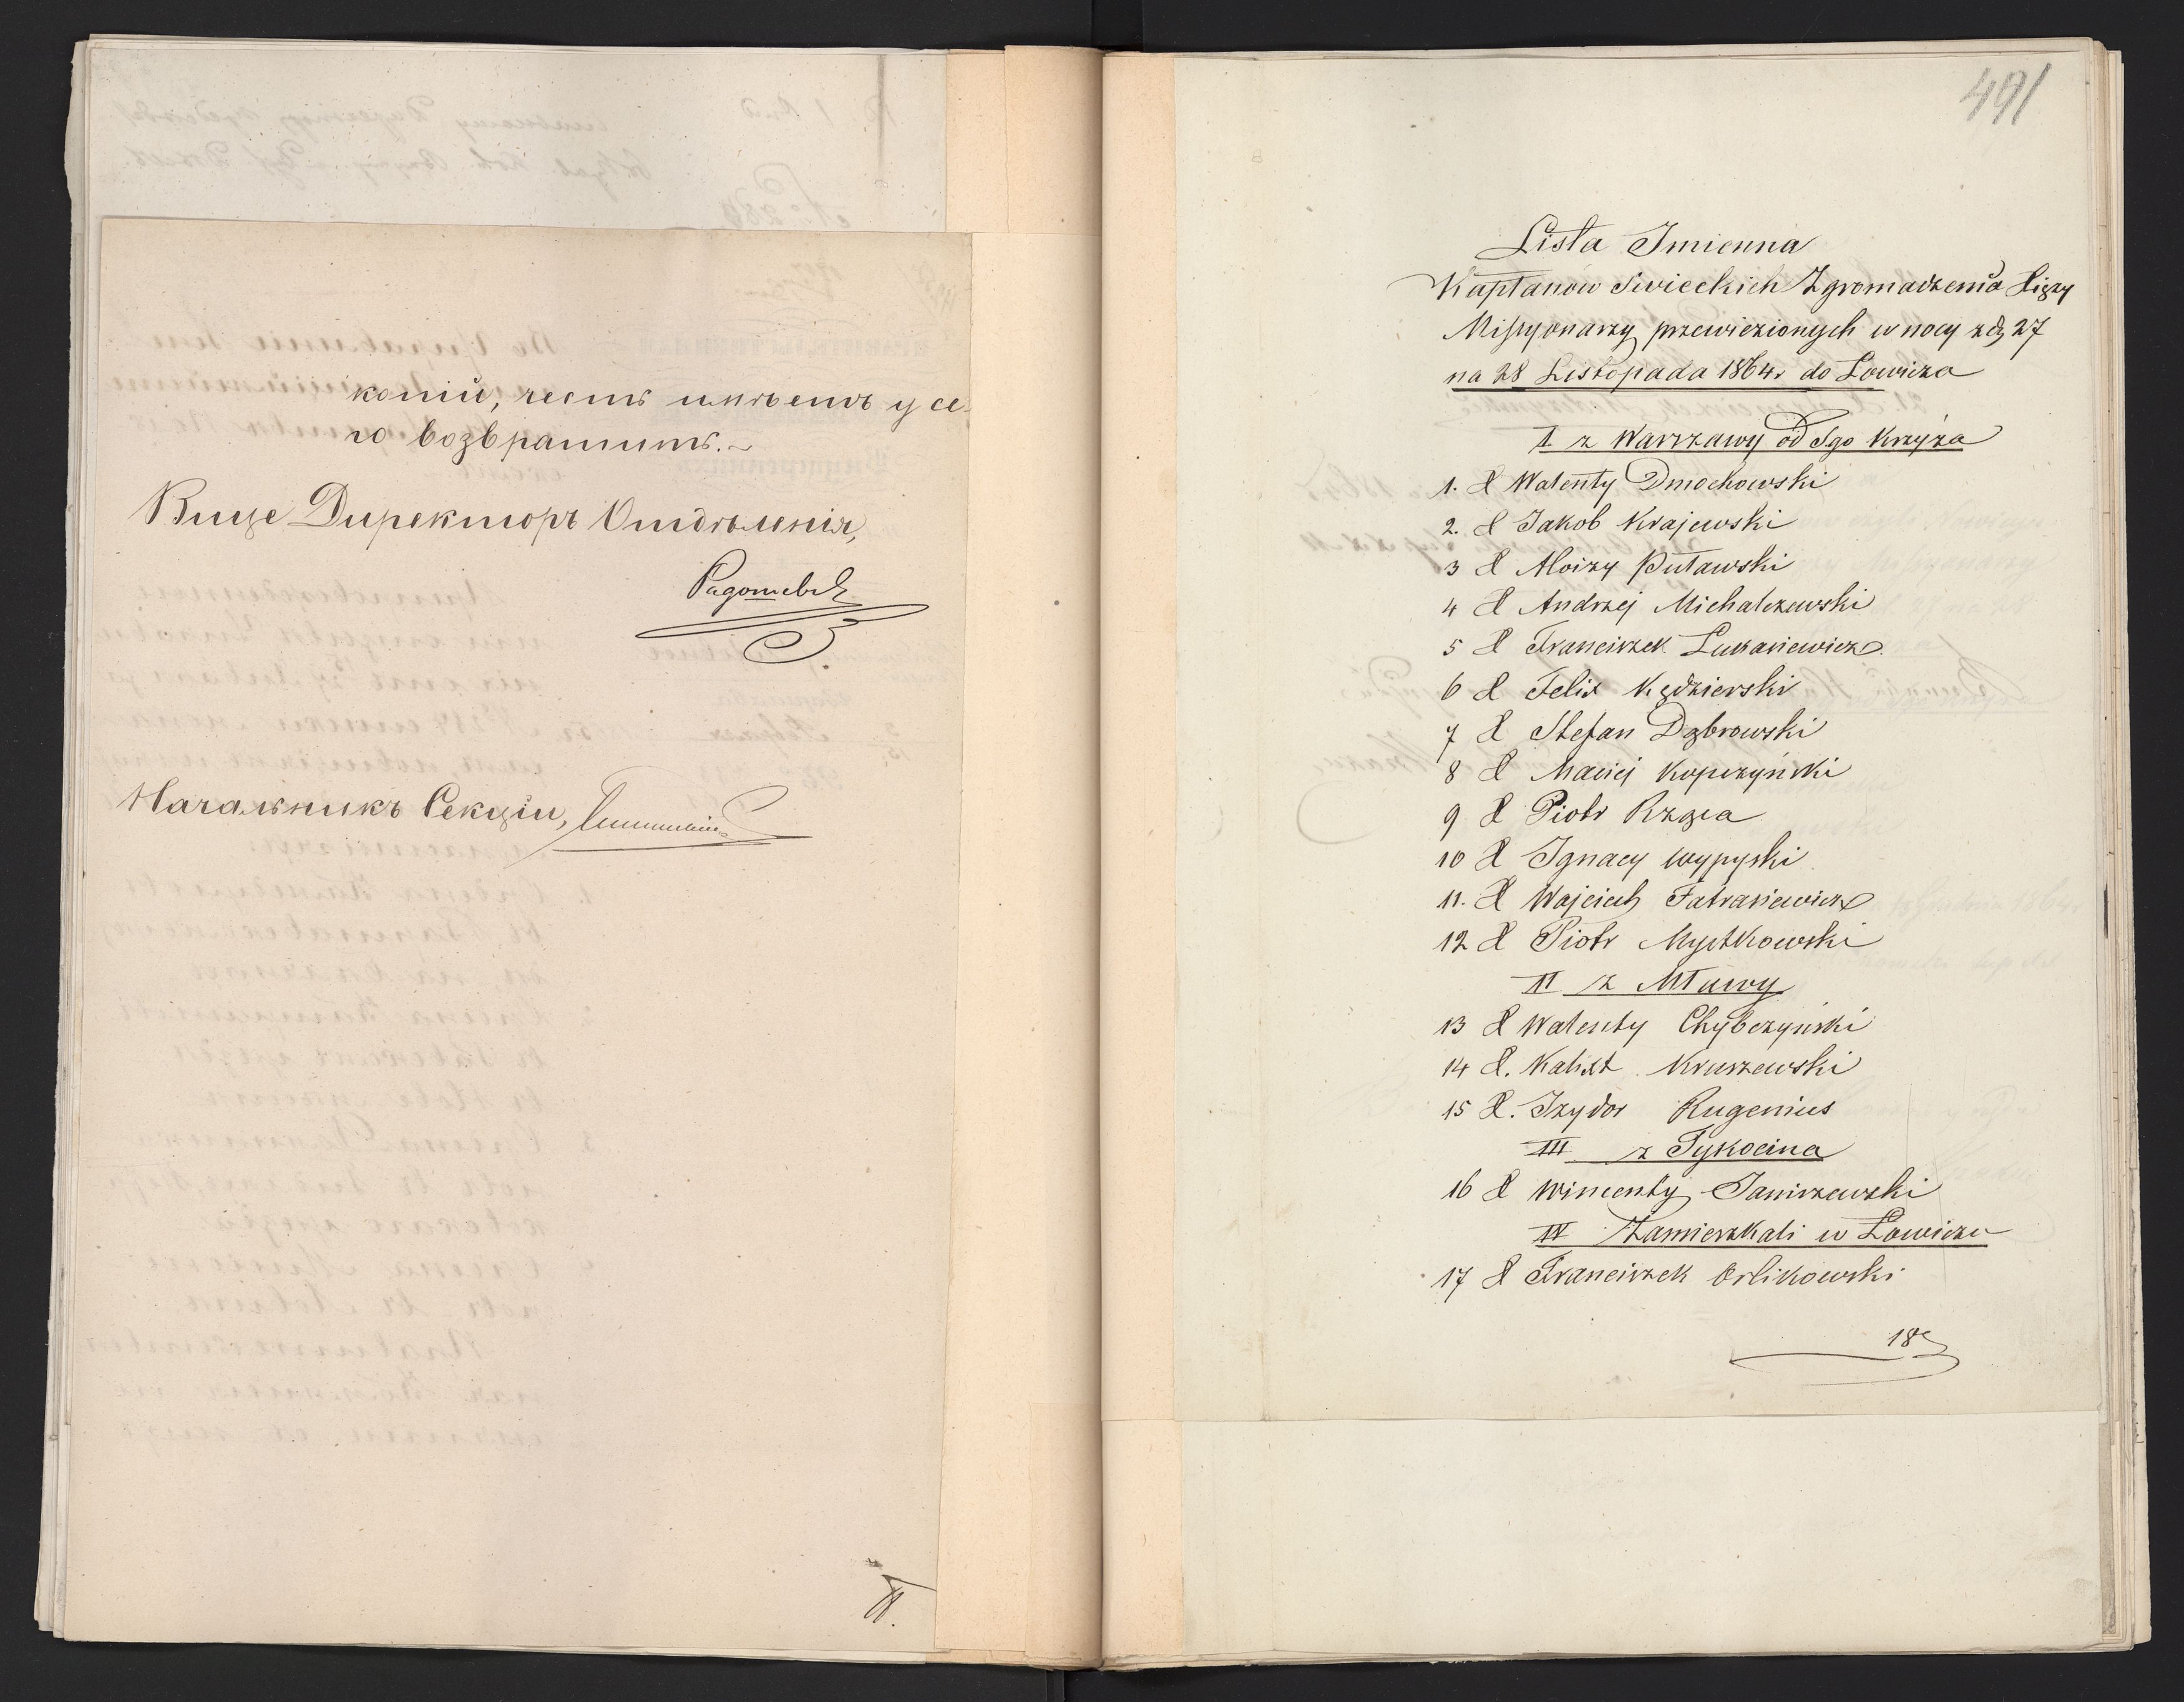 копіи, честь имѣетъ у се-
го возвратить.
Вице Директоръ Отдѣленія,
Начальникъ Секціи,
491
Lista Imienna
Kapłanów Swieckich Zgromadzenia Xięży
Missyonarzy przewiezionych w nocy z d. 27
na 28 Listopada 1864 r. do Łowicza
I. z Warszawy od Sgo Krzyża
1. X Walenty Dmochowski
2. X Jakob Krajewski
3 X Aloizy Puławski
4 X Andrzej Michalczewski
5 X Franciszek Łukasiewicz.
6 X Felix Kędzierski
7 X Stefan Dąbrowski
8 X Maciej Kopczyński
9 X Piotr Rzęca
10 X Ignacy Wypyski
11. X Wojciech Fatrasiewicz
12 X Piotr Mystkowski
II z Mławy
13 X Walenty Chybczyński
14 X. Kalixt Kruszewski
15 X. Izydor Rugenius
III z Tykocina
16 X Wincenty Janiszewski
IV Zamieszkali w Łowiczu
17 X Franciszek Orlikowski
18